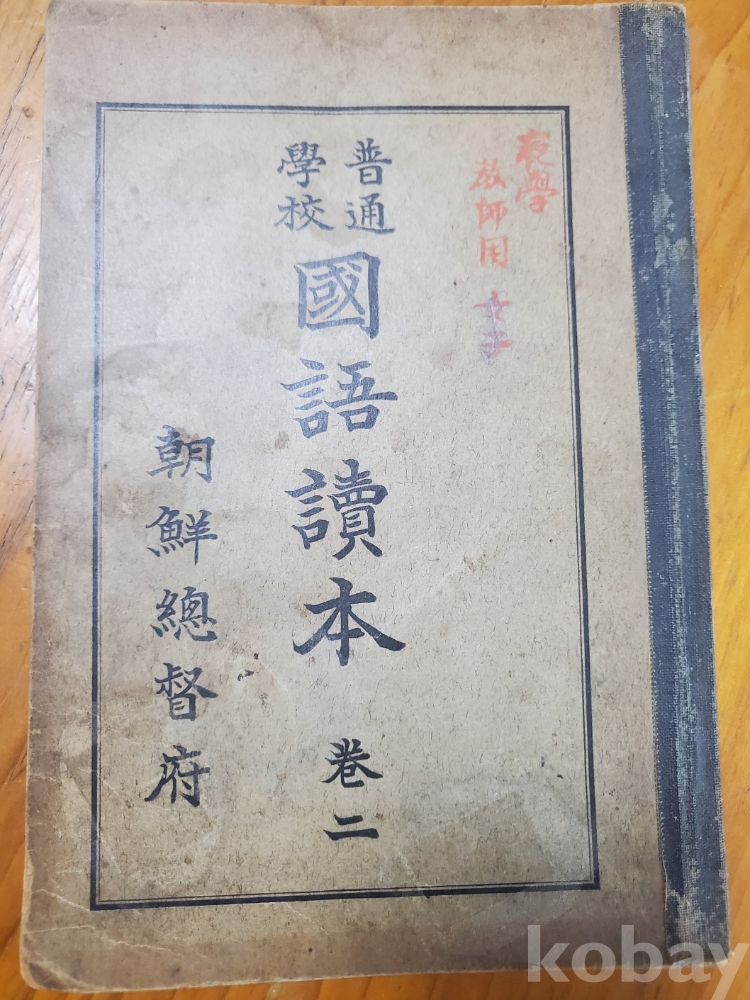 夜學
敎師用 女子
普通
學校
國語讀本 卷二
朝鮮總督府
kobay